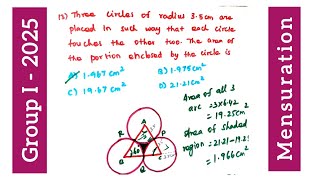 Group I - 2025
13) Three circles of radius 3.5cm are
placed in such way that each circle
touches the other two. The area of
the portion enclosed by the circle is
A) 1.967 cm²
B) 1.975 cm²
C) 19.67 cm²
D) 21.21 cm²
Area of all 3
arc = 3×6.42
= 19.25 cm²
Area of shaded
region = 21.21-19.25
= 1.966 cm²
A
P
R
B
C
Q
60
Mensuration